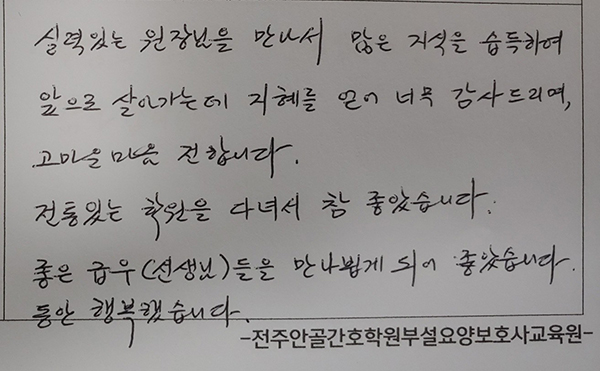 실력있는 원장님을 만나서 많은 지식을 습득하여
앞으로 살아가는데 지혜를 얻어 너무 감사드리며,
고마운마음 전합니다.
전통있는 학원을 다녀서 참 좋았습니다.
좋은 급우(선생님)들을 만나뵙게 되어 좋았습니다.
동안 행복했습니다.
-전주안골간호학원부설요양보호사교육원-